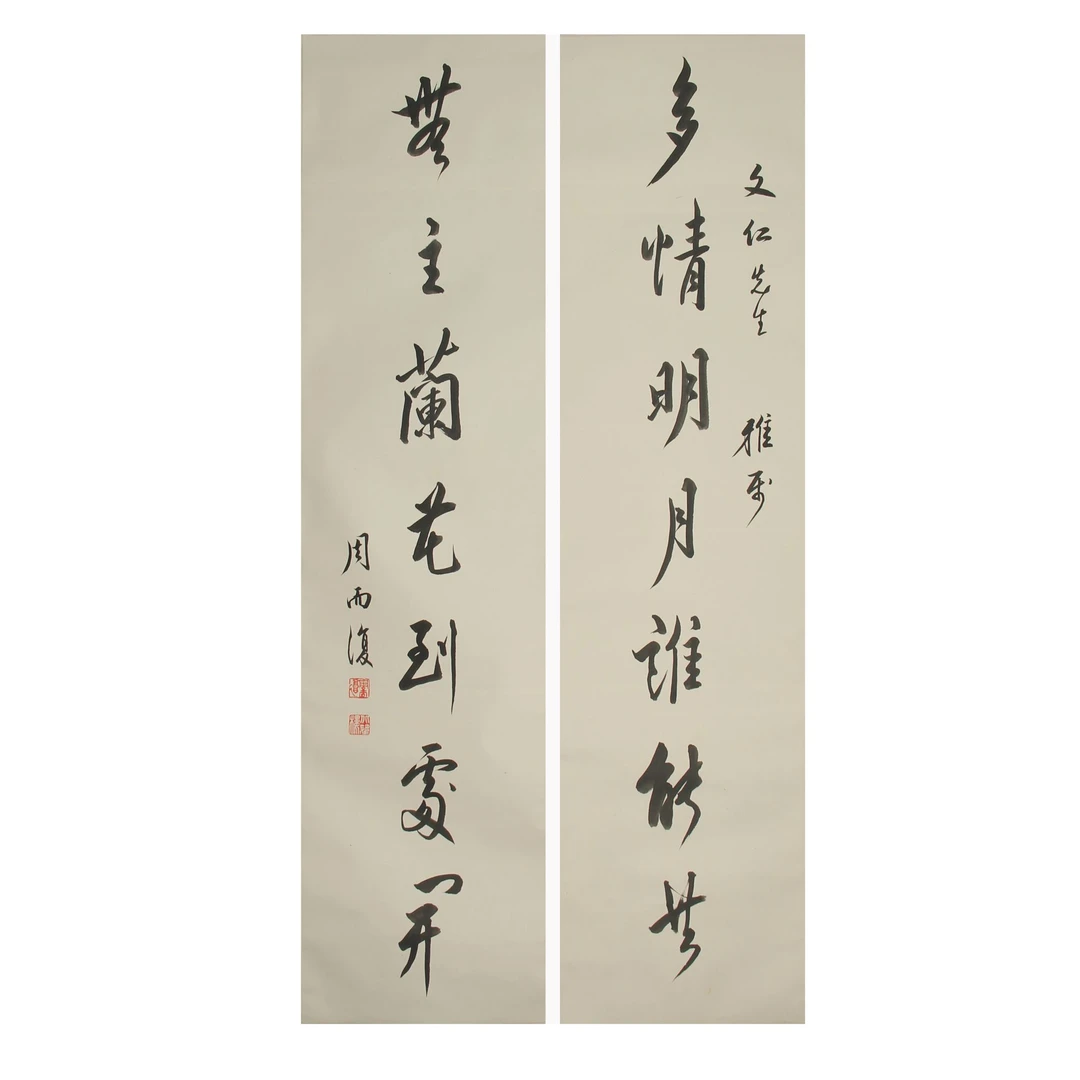 文仁先生 雅屬
多情明月誰能共
無主蘭花到處開
周而復